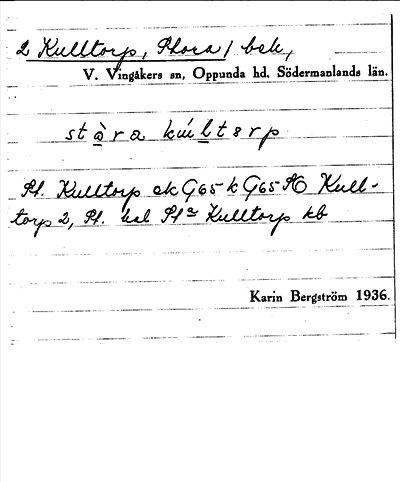 2 Kulltorp, Stora / bek,
V. Vingåkers sn, Oppunda hd, Södermanlands län.
stàra kúltərp
St. Kulltorp ek G65 k G65 SO Kull-
torp 2, St. hal St a Kulltorp kb
Karin Bergström 1936.